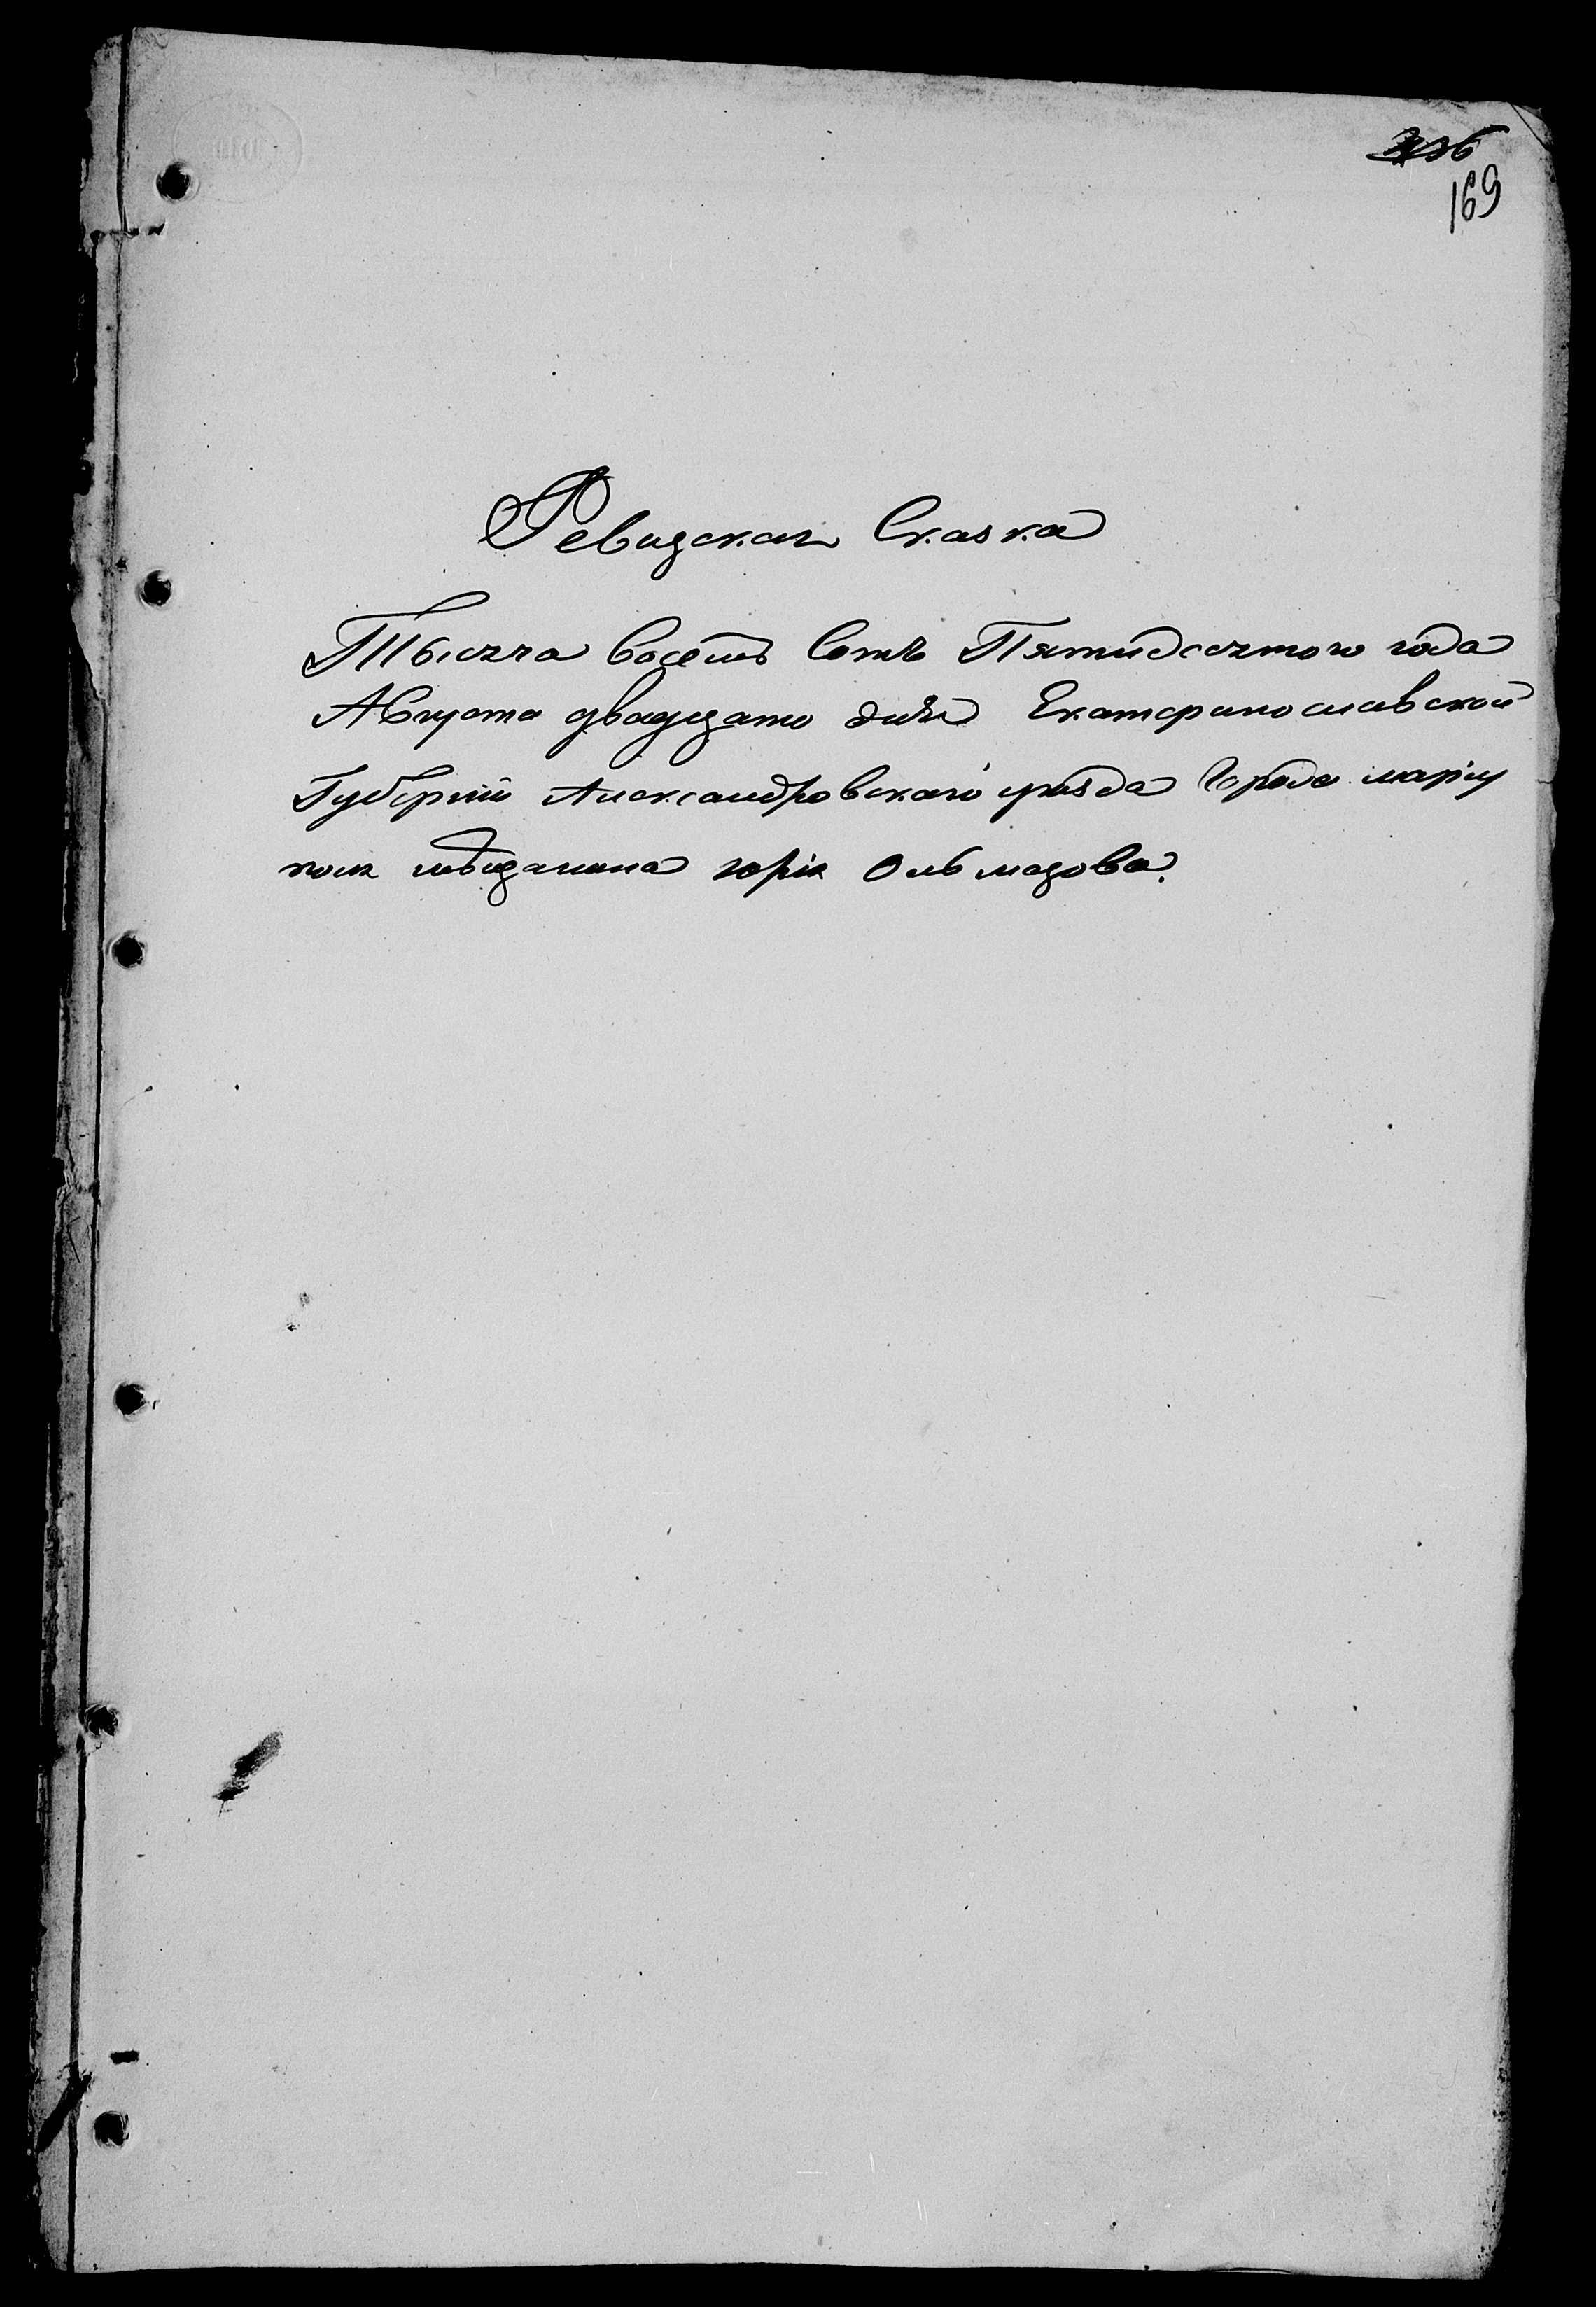 169
Ревизская Сказка
Тысяча восемь Сотъ Пятидесятого года
Августа двадцато дня Екатеринославской
Губернии Александровскаго уезда Города мариу
поля мѣщанина юрия Ольмезова.